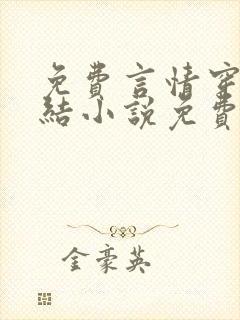 免費言情穿
結小說免費
金豪英